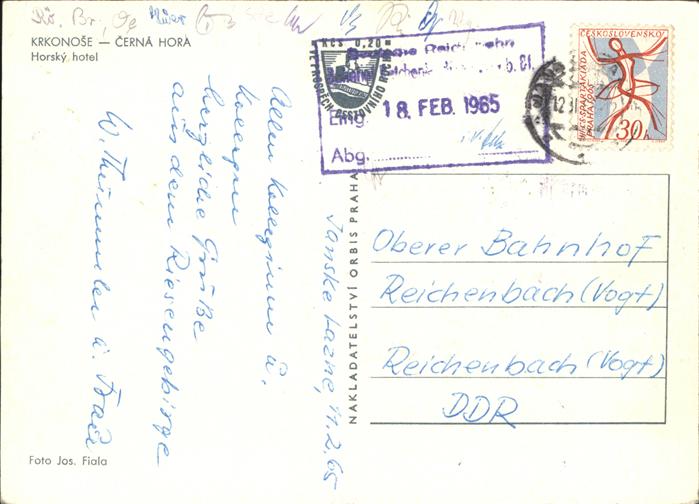 Br.
KRKONOŠE — ČERNÁ HORA
Horský hotel
Kčs 0,20
VE PROSPĚCH CESTOVNÍHO RUCHU
Deutsche Reichsbahn
Eing. 18. FEB. 1965
Abg.
ČESKOSLOVENSKO
SPARTAKIÁDA
PRAHA 1965
30 h
Janske Lazne, 11.2.65
Allen Kolleginnen u.
Kollegen
herzliche Grüße
aus dem Riesengebirge
W. Thümmler u. Frau
NAKLADATELSTVÍ ORBIS PRAHA
Oberer Bahnhof
Reichenbach (Vogt)
Reichenbach (Vogt)
DDR
Foto Jos. Fiala